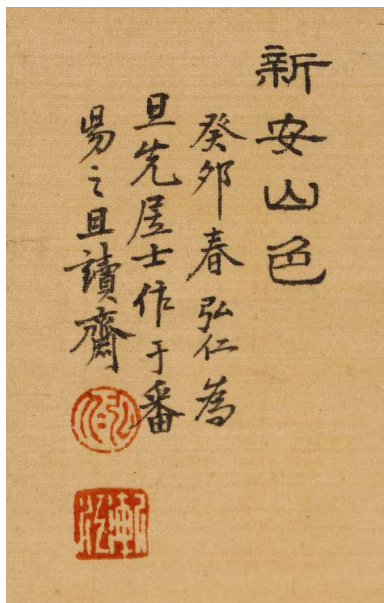 新安山色
癸夘春弘仁為
旦先居士作于番
昜之且讀齋
弘仁
漸江